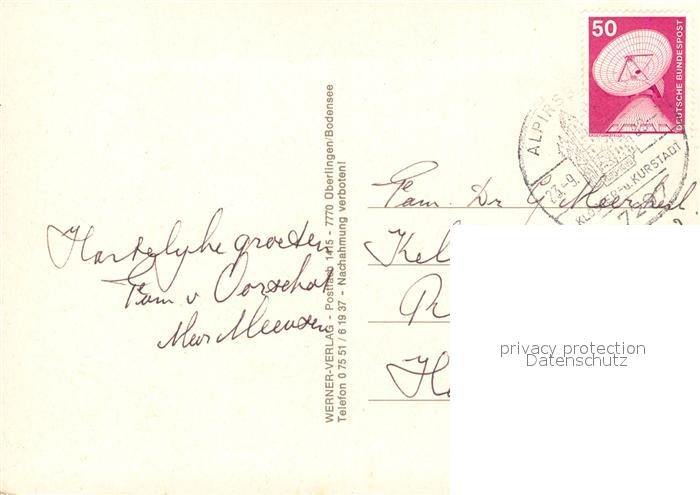 50
DEUTSCHE BUNDESPOST
ALPIRSBACH
23.-9.
KLOSTER- u. KURSTADT
7297
WERNER-VERLAG - Postfach 1415 - 7770 Überlingen/Bodensee
Telefon 0 75 51 / 6 19 37 - Nachahmung verboten!
Hartelijke groeten
Fam v Oorschot
Fam. Dr. G
Kel
Pr
privacy protection
Datenschutz